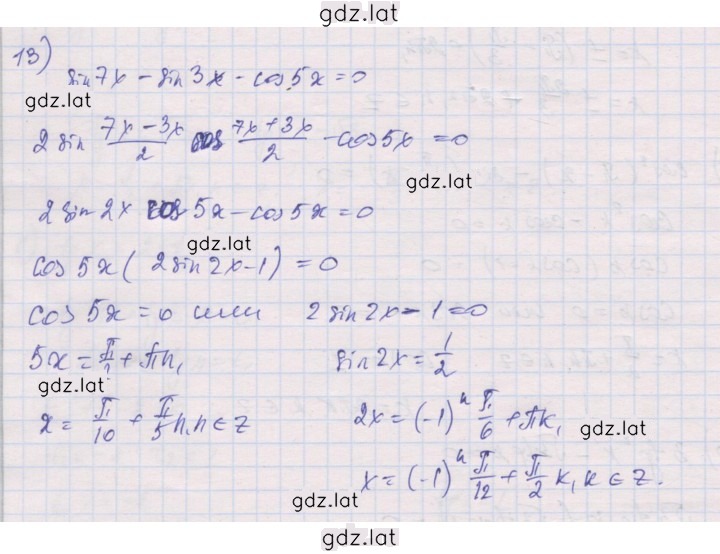 gdz.lat
13)
sin 7x − sin 3x − cos 5x = 0
gdz.lat
2 sin (7x − 3x)/2 cos (7x + 3x)/2 − cos 5x = 0
gdz.lat
2 sin 2x cos 5x − cos 5x = 0
gdz.lat
cos 5x ( 2 sin 2x − 1 ) = 0
cos 5x = 0 или 2 sin 2x − 1 = 0
5x = π/2 + πn, sin 2x = 1/2
gdz.lat
x = π/10 + π/5 n, n ∈ Z 2x = (−1)^k π/6 + πk,
gdz.lat
x = (−1)^k π/12 + π/2 k, k ∈ Z.
gdz.lat
gdz.lat